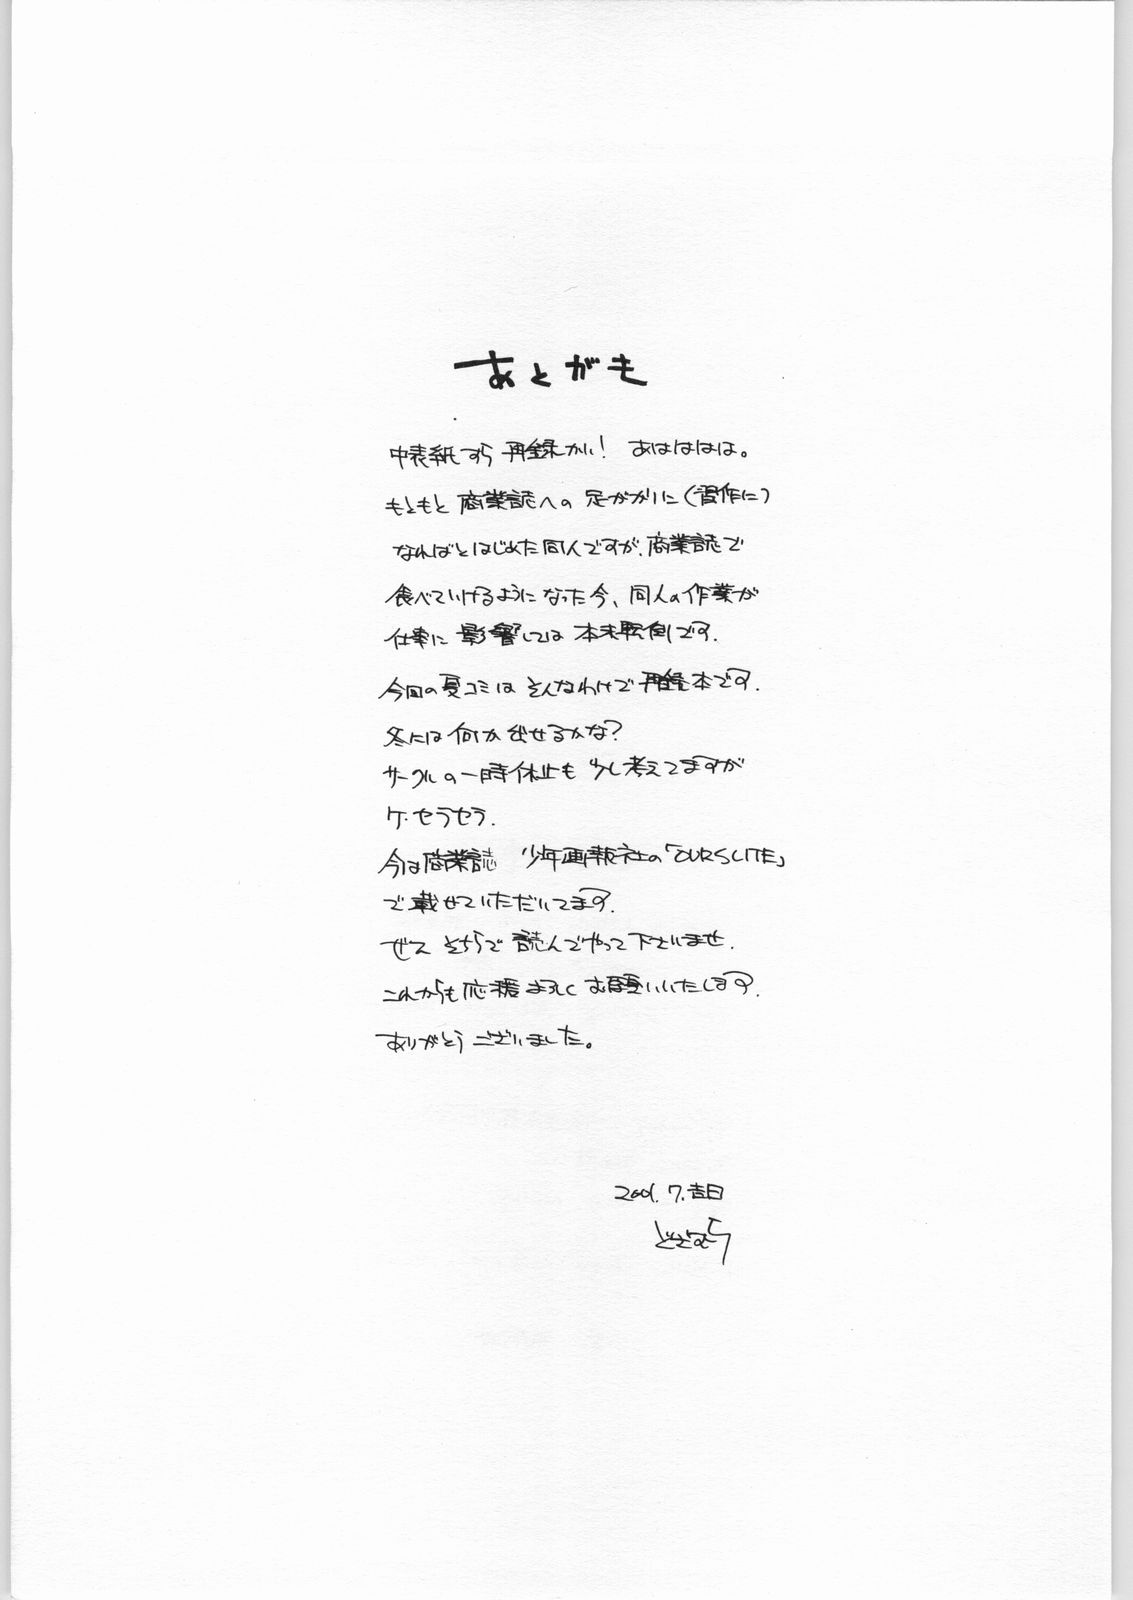 あとがき
中表紙すら再録かい! あはははは。
もともと商業誌への足がかりに(習作に)
なればとはじめた同人ですが、商業誌で
食べていけるようになった今、同人の作業が
仕事に影響しては本末転倒です.
今回の夏コミはそんなわけで再録本です.
冬には何か出せるかな?
サークルの一時休止も少し考えてますが
ケ・セラセラ.
今は商業誌 少年画報社の「OURS LITE」
で載せていただいてます.
ぜひそちらで読んでやって下さいませ.
これからも応援よろしくお願いいたします.
ありがとうございました。
2001.7.吉日